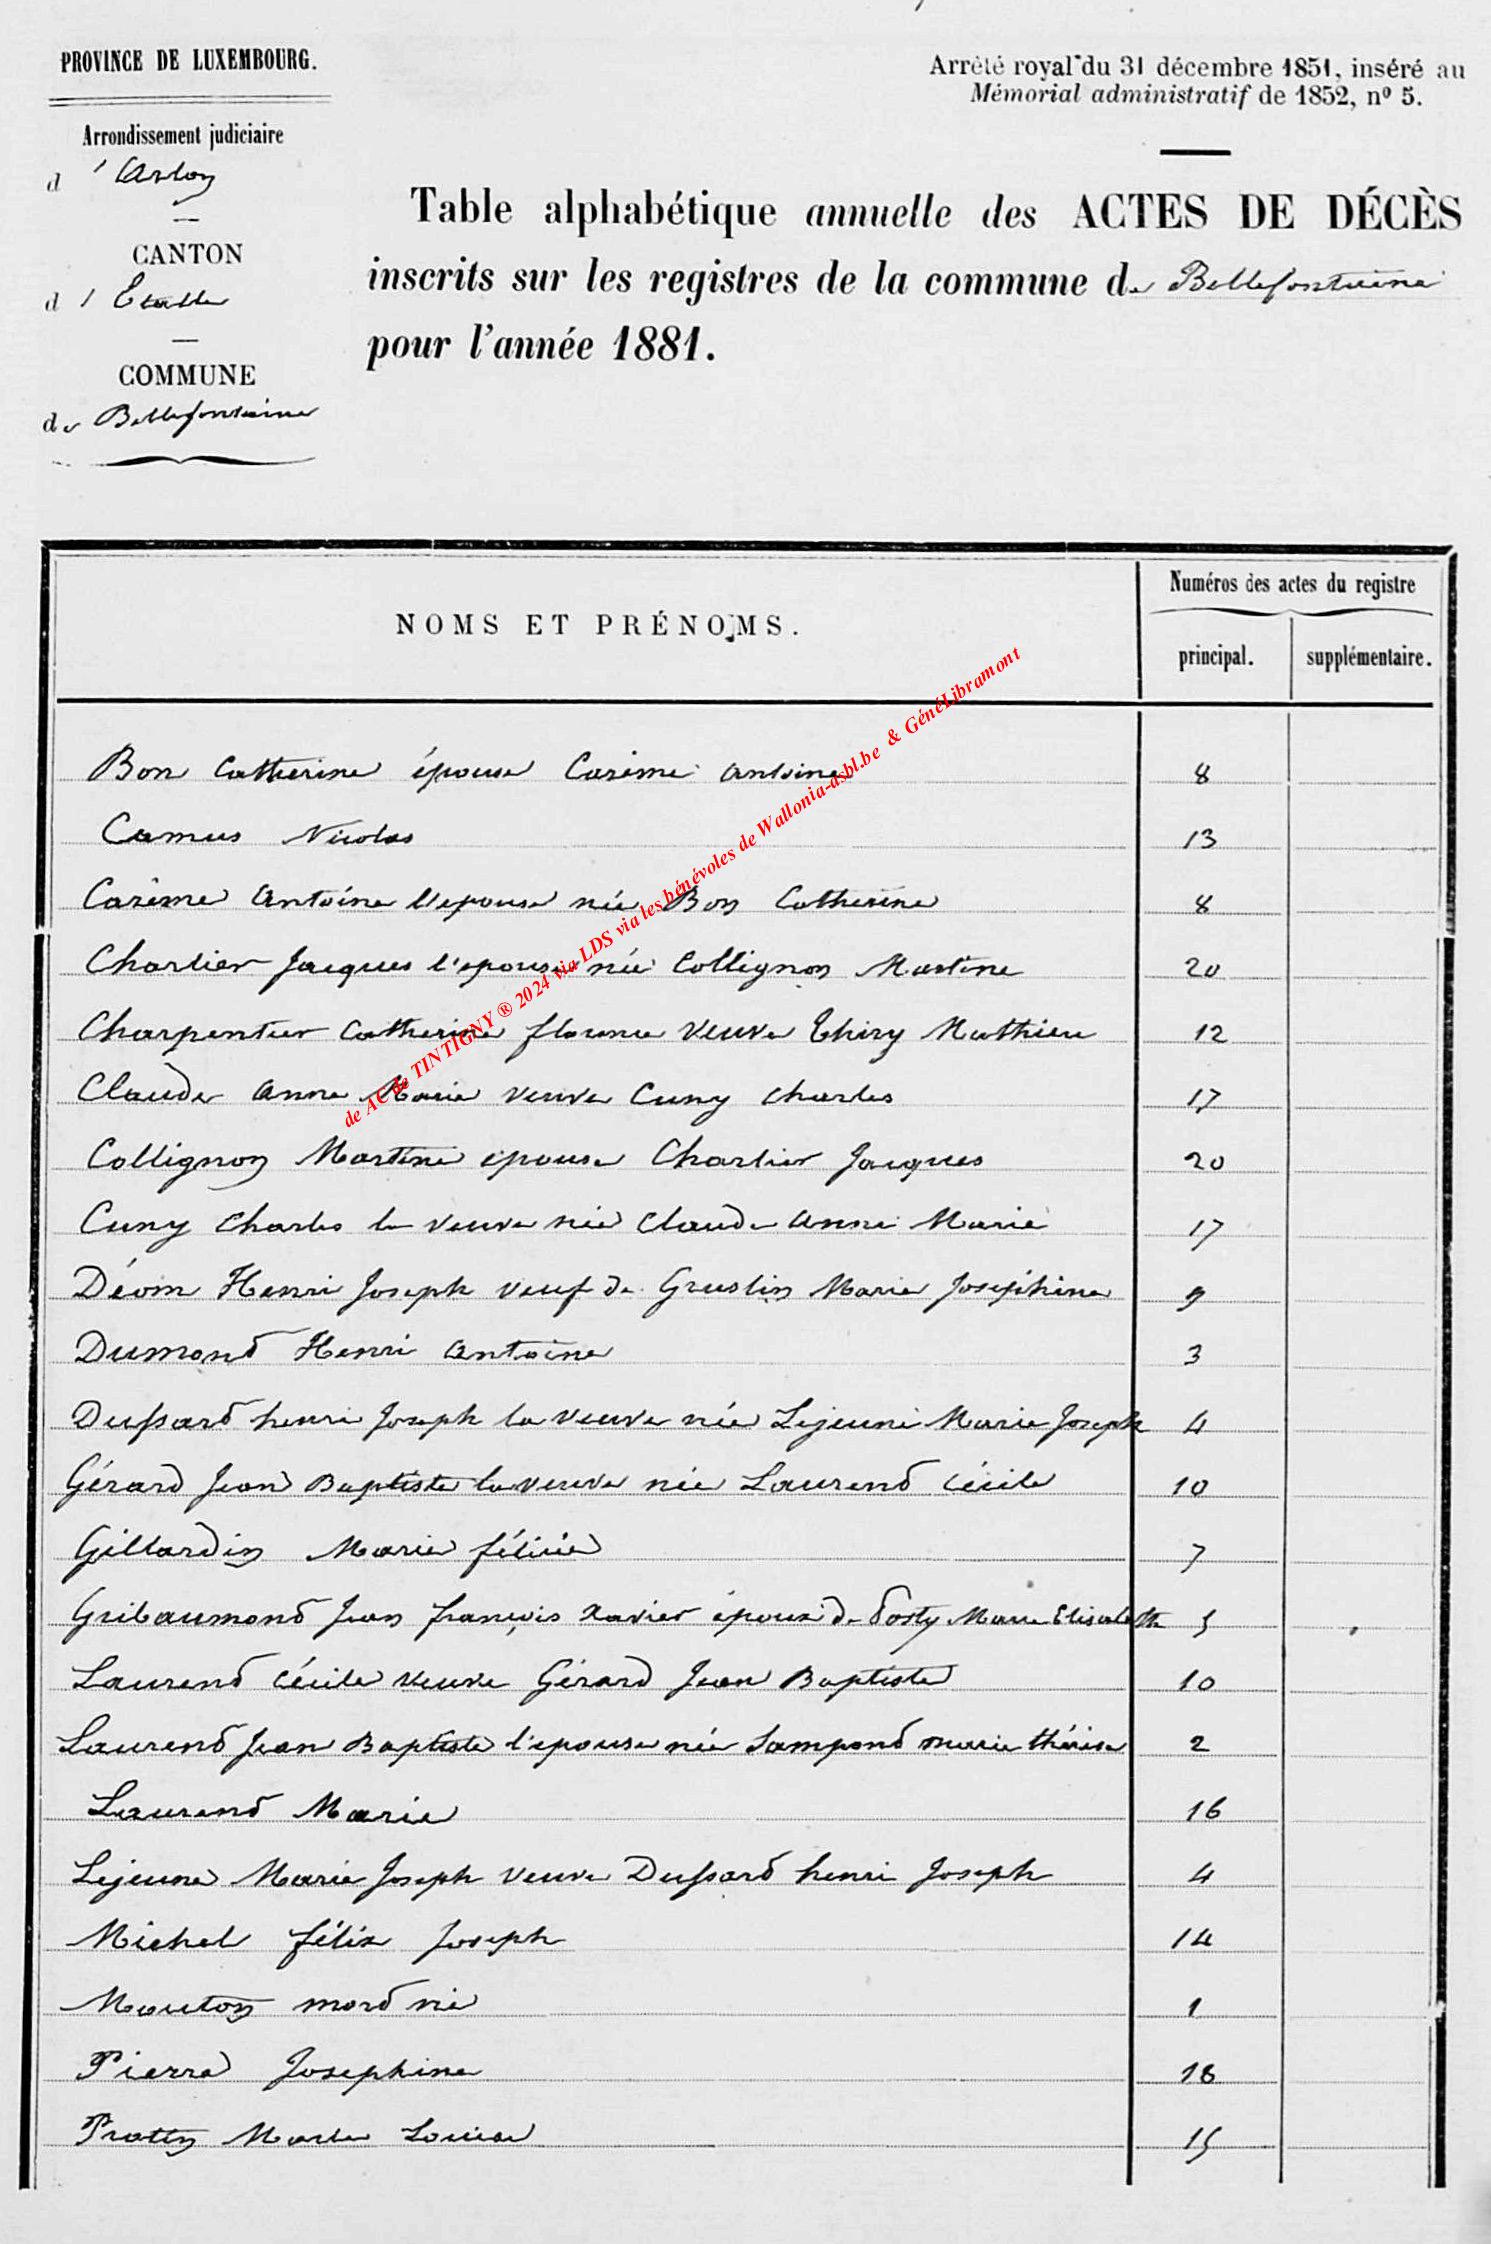 PROVINCE DE LUXEMBOURG.
Arrondissement judiciaire
d'Arlon
CANTON
d'Etalle
COMMUNE
de Bellefontaine
Arrêté royal du 31 décembre 1851, inséré au
Mémorial administratif de 1852, nº 5.
Table alphabétique annuelle des ACTES DE DÉCÈS
inscrits sur les registres de la commune de Bellefontaine
pour l'année 1881.
NOMS ET PRÉNOMS.
Numéros des actes du registre
principal. supplémentaire.
Bon Catherine épouse Carème Antoine 8
Camus Nicolas 13
Carème Antoine l'épouse née Bon Catherine 8
Charlier Jacques l'épouse née Collignon Martine 20
Charpentier Catherine florence veuve Thiry Mathieu 12
Claude Anne Marie veuve Cuny Charles 17
Collignon Martine épouse Charlier Jacques 20
Cuny Charles la veuve née Claude Anne Marie 17
Déom Henri Joseph veuf de Gruslin Marie Joséphine 9
Dumond Henri Antoine 3
Dussard henri Joseph la veuve née Lejeune Marie Joseph 4
Gérard Jean Baptiste la veuve née Laurend Cécile 10
Gillardin Marie félicie 7
Gribaumond Jean françois Xavier époux de Marie Elisabeth 5
Laurend Cécile veuve Gérard Jean Baptiste 10
Laurend Jean Baptiste l'épouse née Lampond marie thérèse 2
Laurend Marie 16
Lejeune Marie Joseph veuve Dussard henri Joseph 4
Michel félix Joseph 14
Mouton mord né 1
Pierre Josephine 18
Marie Louise 15
de AC de TINTIGNY ® 2024 via LDS via les bénévoles de Wallonia-asbl.be & GénéLibramont